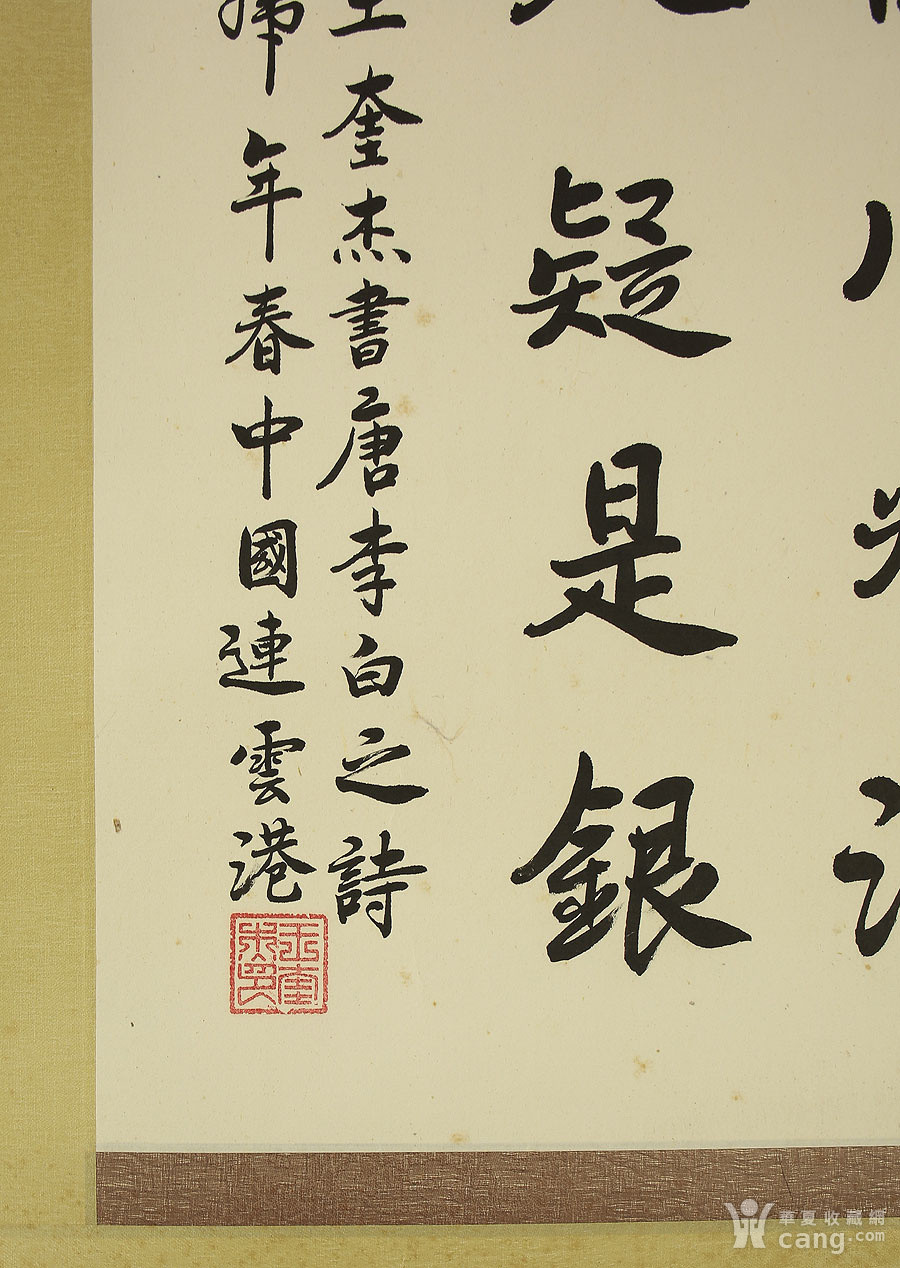 疑是銀
奎杰書唐李白之詩
年春中國連雲港
王奎杰印
華夏收藏網
cang.com